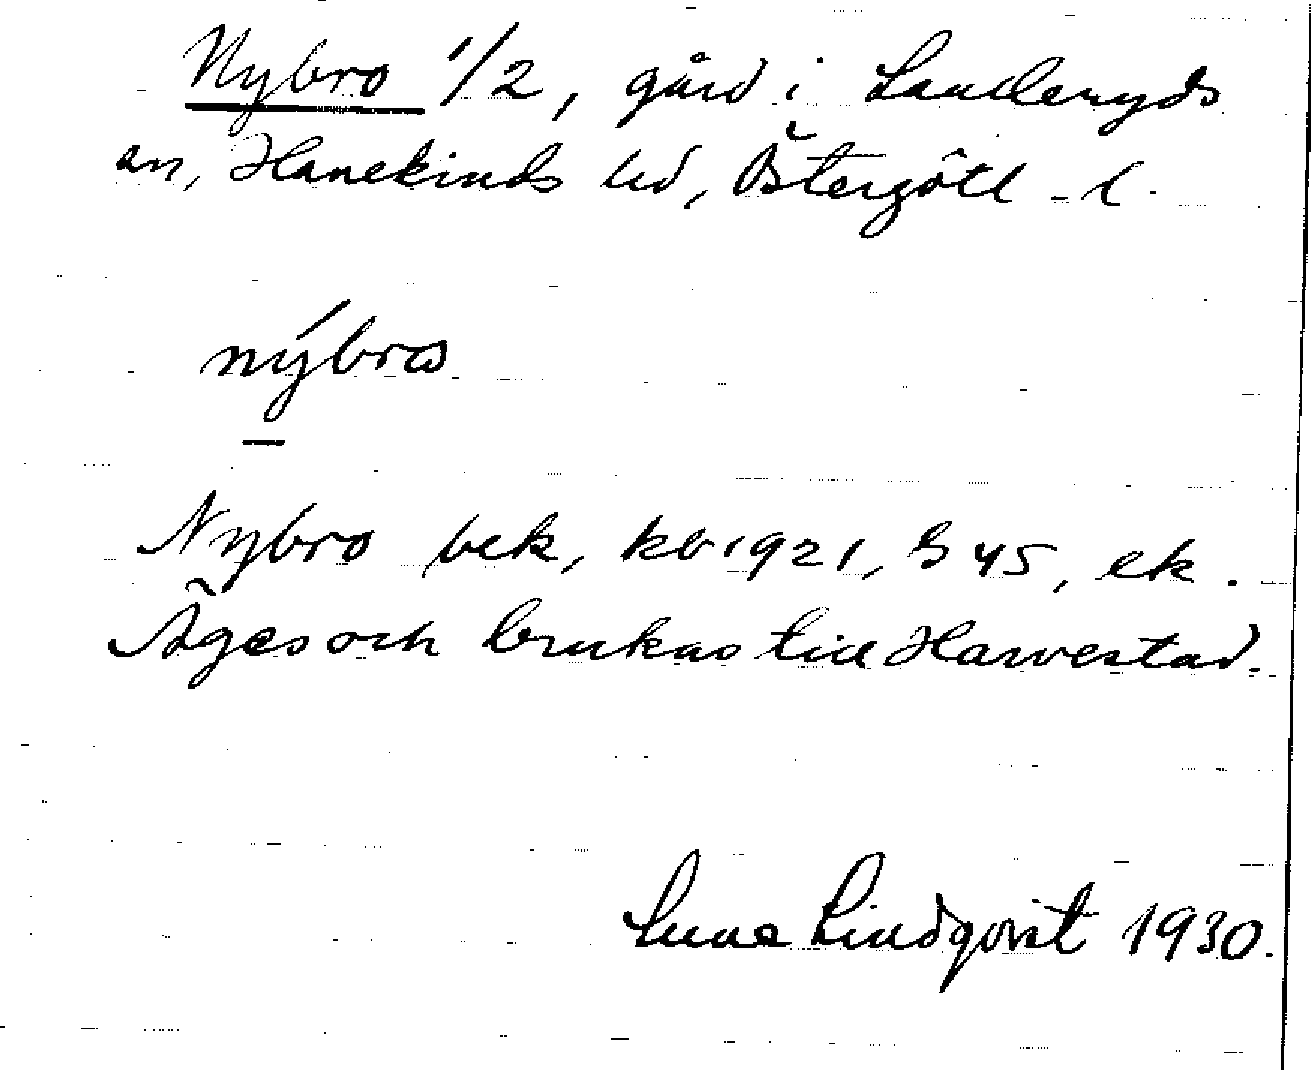 Nybro 1/2, gård i Landeryds
sn, Hanekinds hd, Östergötl. l.
nýbro
Nybro bek, kb 1921, S 45, ek.
Äges och brukas till Harvestad.
Sune Lindqvist 1930.